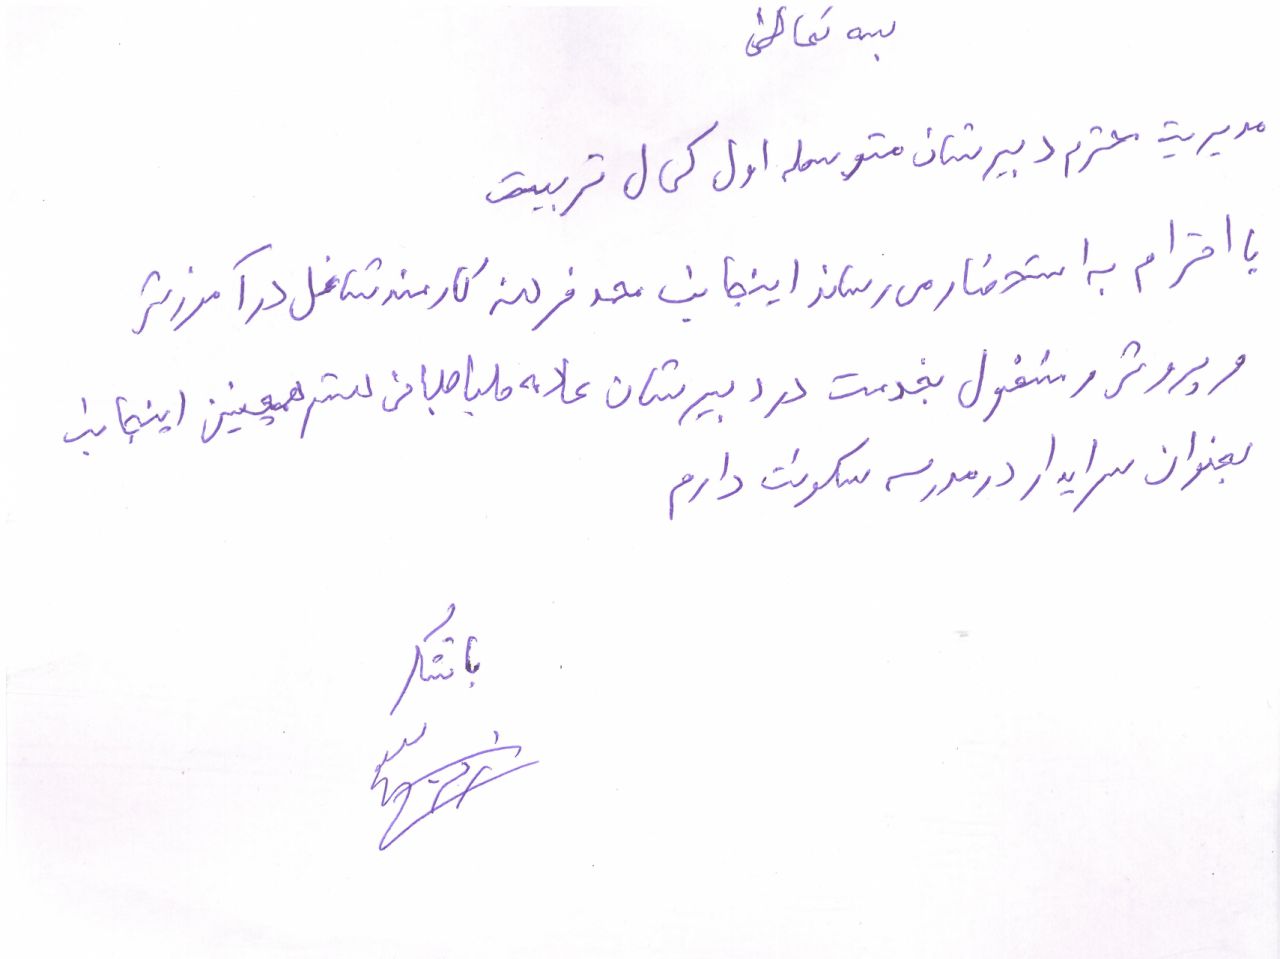 بسه تعالی
مدیریت محترم دبیرستان متوسطه اول کمال تربیت
با احترام به استحضار می رساند اینجانب محمد فرهنه کارمند شاغل در آموزش
و پرورش و مشغول بخدمت در دبیرستان علامه طباطبائی هستم همچنین اینجانب
بعنوان سرایدار در مدرسه سکونت دارم
با تشکر